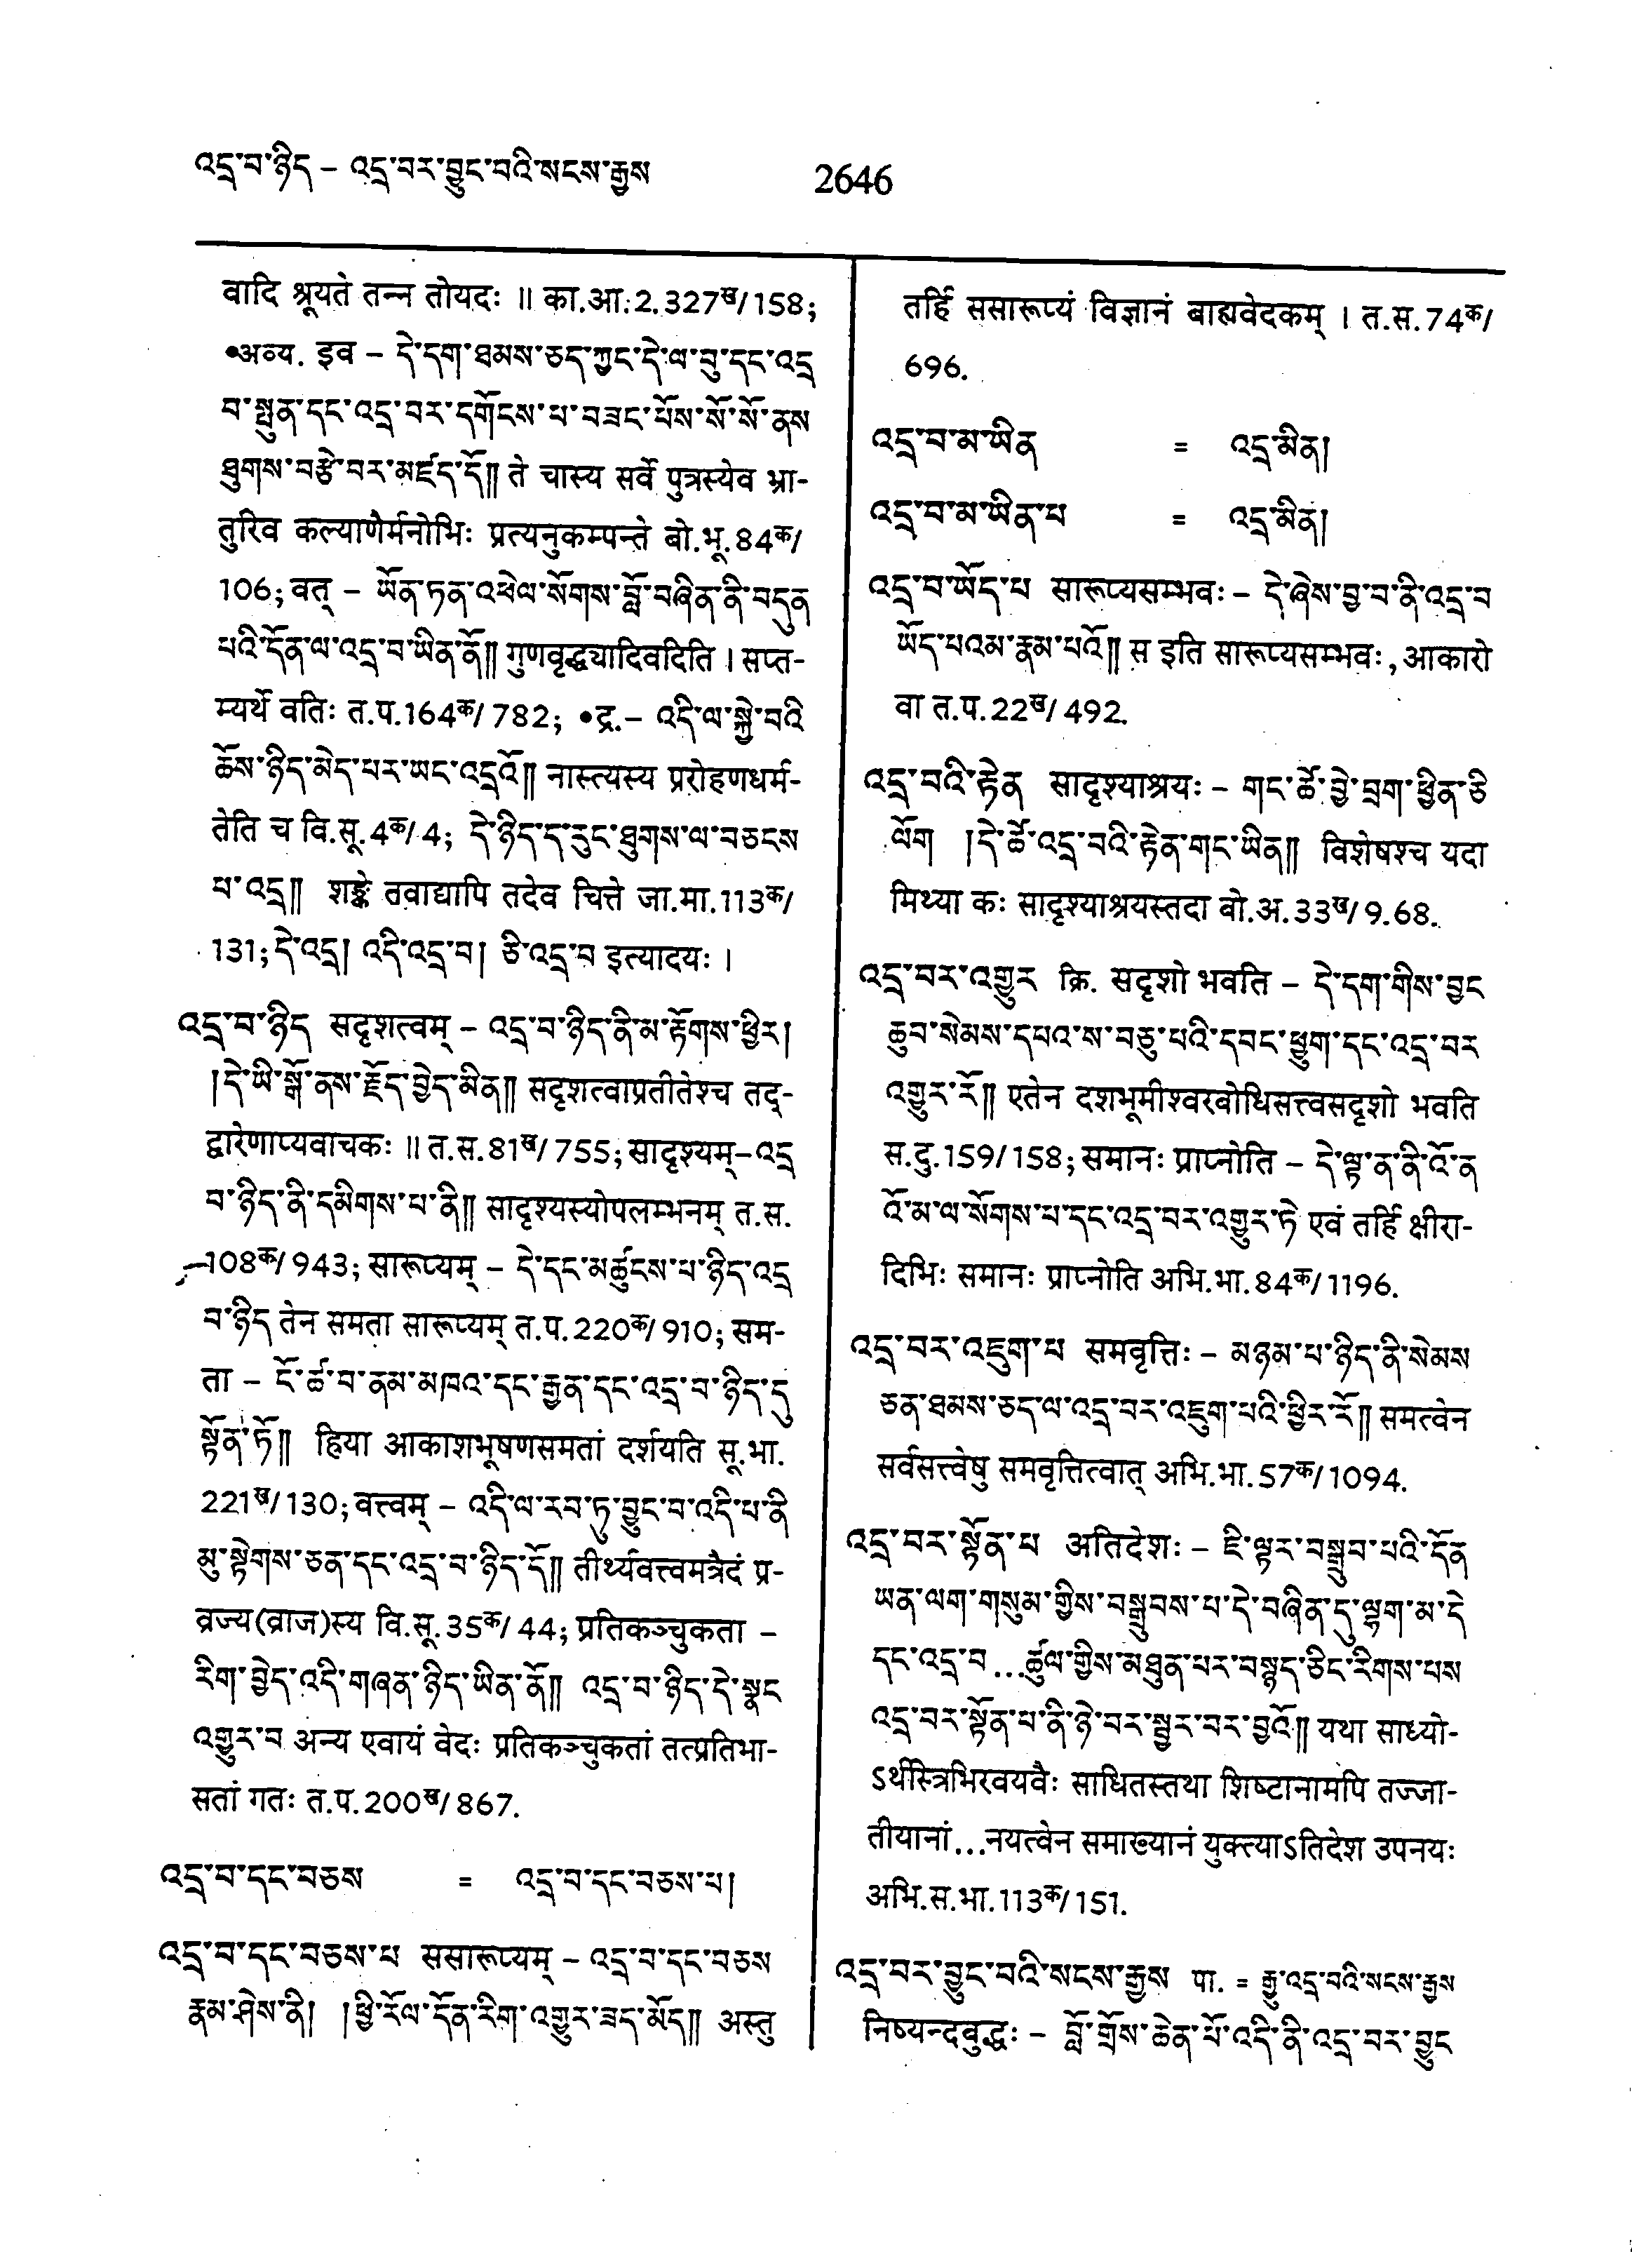 འདྲ་བ་ཉིད – འདྲ་བར་བྱུང་བའི་སངས་རྒྱས
2646
वादि श्रूयते तन्न तोयदः ॥ का.आ.2.327ख/158;
•अव्य. इव – དེ་དག་ཐམས་ཅད་ཀྱང་དེ་ལ་བུ་དང་འདྲ
བ་སྤུན་དང་འདྲ་བར་དགོངས་པ་བཟང་པོས་སོ་སོ་ནས
ཐུགས་བརྩེ་བར་མཛད་དོ༎ ते चास्य सर्वे पुत्रस्येव भ्रा-
तुरिव कल्याणैर्मनोभिः प्रत्यनुकम्पन्ते बो.भू.84क/
106; वत् – ཡོན་ཏན་འཕེལ་སོགས་བློ་བཞིན་ནི་བདུན
པའི་དོན་ལ་འདྲ་བ་ཡིན་ནོ༎ गुणवृद्ध्यादिवदिति । सप्त-
म्यर्थे वतिः त.प.164क/782; •द्र.– འདི་ལ་སྐྱེ་བའི
ཆོས་ཉིད་མེད་པར་ཡང་འདྲའོ༎ नास्त्यस्य प्ररोहणधर्म-
तेति च वि.सू.4क/4; དེ་ཉིད་ད་རུང་ཐུགས་ལ་བཅངས
པ་འདྲ༎ शङ्के तवाद्यापि तदेव चित्ते जा.मा.113क/
131; དེ་འདྲ། འདི་འདྲ་བ། ཅི་འདྲ་བ इत्यादयः ।
འདྲ་བ་ཉིད सदृशत्वम् – འདྲ་བ་ཉིད་ནི་མ་རྟོགས་ཕྱིར།
།དེ་ཡི་སྒོ་ནས་རྗོད་བྱེད་མིན༎ सदृशत्वाप्रतीतेश्च तद्-
द्वारेणाप्यवाचकः ॥ त.स.81ख/755; सादृश्यम्–འདྲ
བ་ཉིད་ནི་དམིགས་པ་ནི༎ सादृश्यस्योपलम्भनम् त.स.
108क/943; सारूप्यम् – དེ་དང་མཚུངས་པ་ཉིད་འདྲ
བ་ཉིད तेन समता सारूप्यम् त.प.220क/910; सम-
ता – ངོ་ཚ་བ་ནམ་མཁའ་དང་རྒྱན་དང་འདྲ་བ་ཉིད་དུ
སྟོན་ཏོ༎ हिया आकाशभूषणसमतां दर्शयति सू.भा.
221ख/130; वत्त्वम् – འདི་ལ་རབ་ཏུ་བྱུང་བ་འདི་པ་ནི
མུ་སྟེགས་ཅན་དང་འདྲ་བ་ཉིད་དོ༎ तीर्थ्यवत्त्वमत्रैदं प्र-
व्रज्य(व्राज)स्य वि.सू.35क/44; प्रतिकञ्चुकता –
རིག་བྱེད་འདི་གཞན་ཉིད་ཡིན་ནོ༎ འདྲ་བ་ཉིད་དེ་སྣང
འགྱུར་བ अन्य एवायं वेदः प्रतिकञ्चुकतां तत्प्रतिभा-
सतां गतः त.प.200ख/867.
འདྲ་བ་དང་བཅས = འདྲ་བ་དང་བཅས་པ།
འདྲ་བ་དང་བཅས་པ ससारूप्यम् – འདྲ་བ་དང་བཅས
རྣམ་ཤེས་ནི། །ཕྱི་རོལ་དོན་རིག་འགྱུར་ཟད་མོད༎ अस्तु
तर्हि ससारूप्यं विज्ञानं बाह्यवेदकम् । त.स.74क/
696.
འདྲ་བ་མ་ཡིན = འདྲ་མིན།
འདྲ་བ་མ་ཡིན་པ = འདྲ་མིན།
འདྲ་བ་ཡོད་པ सारूप्यसम्भवः – དེ་ཞེས་བྱ་བ་ནི་འདྲ་བ
ཡོད་པའམ་རྣམ་པའོ༎ स इति सारूप्यसम्भवः, आकारो
वा त.प.22ख/492.
འདྲ་བའི་རྟེན सादृश्याश्रयः – གང་ཚོ་བྱེ་བྲག་ཕྱིན་ཅི
ལོག །དེ་ཚོ་འདྲ་བའི་རྟེན་གང་ཡིན༎ विशेषश्च यदा
मिथ्या कः सादृश्याश्रयस्तदा बो.अ.33ख/9.68.
འདྲ་བར་འགྱུར क्रि. सदृशो भवति – དེ་དག་གིས་བྱང
ཆུབ་སེམས་དཔའ་ས་བཅུ་པའི་དབང་ཕྱུག་དང་འདྲ་བར
འགྱུར་རོ༎ एतेन दशभूमीश्वरबोधिसत्त्वसदृशो भवति
स.दु.159/158; समानः प्राप्नोति – དེ་ལྟ་ན་ནི་འོ་ན
འོ་མ་ལ་སོགས་པ་དང་འདྲ་བར་འགྱུར་ཏེ एवं तर्हि क्षीरा-
दिभिः समानः प्राप्नोति अभि.भा.84क/1196.
འདྲ་བར་འཇུག་པ समवृत्तिः – མཉམ་པ་ཉིད་ནི་སེམས
ཅན་ཐམས་ཅད་ལ་འདྲ་བར་འཇུག་པའི་ཕྱིར་རོ༎ समत्वेन
सर्वसत्त्वेषु समवृत्तित्वात् अभि.भा.57क/1094.
འདྲ་བར་སྟོན་པ अतिदेशः – ཇི་ལྟར་བསྒྲུབ་པའི་དོན
ཡན་ལག་གསུམ་གྱིས་བསྒྲུབས་པ་དེ་བཞིན་དུ་ལྷག་མ་དེ
དང་འདྲ་བ...ཚུལ་གྱིས་མཐུན་པར་བསྙད་ཅིང་རིགས་པས
འདྲ་བར་སྟོན་པ་ནི་ཉེ་བར་སྦྱར་བར་བྱའོ༎ यथा साध्यो-
ऽर्थस्त्रिभिरवयवैः साधितस्तथा शिष्टानामपि तज्जा-
तीयानां...नयत्वेन समाख्यानं युक्त्याऽतिदेश उपनयः
अभि.स.भा.113क/151.
འདྲ་བར་བྱུང་བའི་སངས་རྒྱས पा. = རྒྱུ་འདྲ་བའི་སངས་རྒྱས
निष्यन्दबुद्धः – བློ་གྲོས་ཆེན་པོ་འདི་ནི་འདྲ་བར་བྱུང